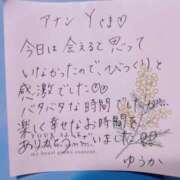 アナン Yさま♡
今日は会えると思って
いなかったので、びっくり!と
感激でした♡♡
バタバタな時間でしたが、
楽しく幸せなお時間を
ありがとうございました
ゆうか